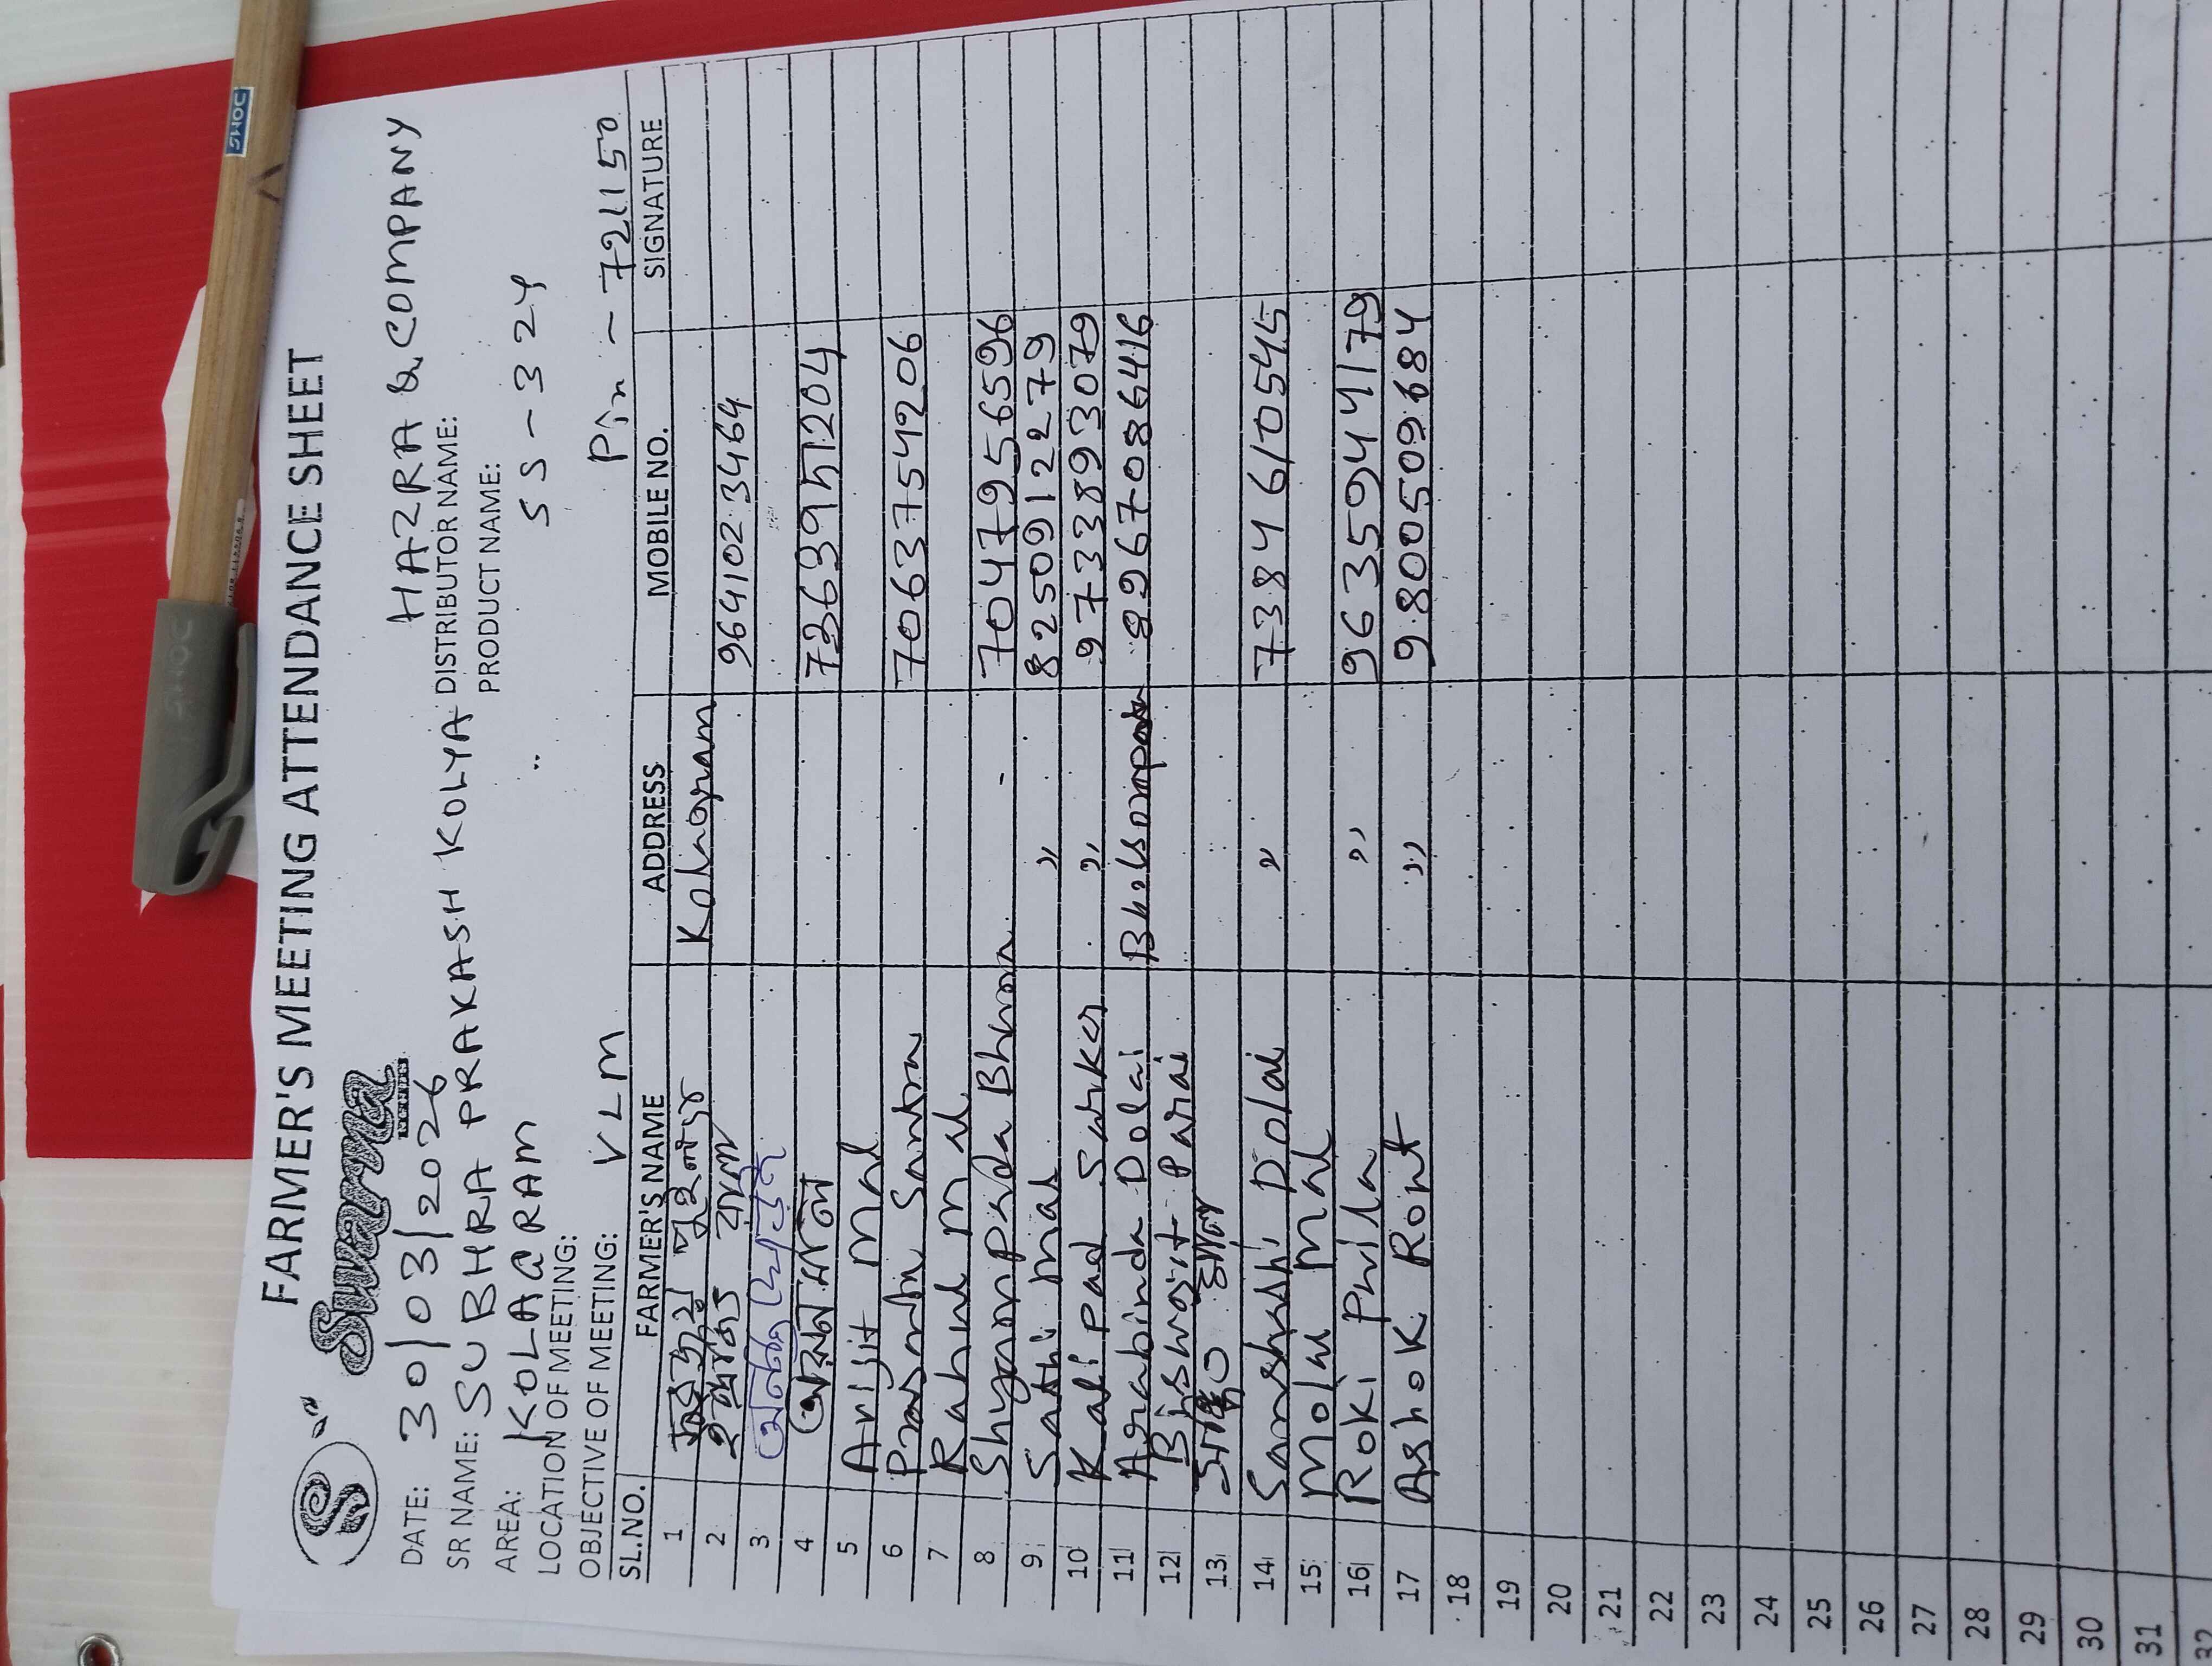 FARMER'S MEETING ATTENDANCE SHEET
Swarna
DATE: 30/03/2026
HAZRA & COMPANY
SR NAME: SUBHRA PRAKASH KOLYA DISTRIBUTOR NAME:
AREA: KOLAGRAM PRODUCT NAME:
LOCATION OF MEETING: SS-324
OBJECTIVE OF MEETING: VLM Pin - 721150
SL.NO. FARMER'S NAME ADDRESS MOBILE NO. SIGNATURE
1 Kolagram
2 9641023464
3
4 7363951204
5 Arijit Mal
6 Prasanta Santra 7063754206
7 Rahul Mal
8 Shyampada Bhunia 7047956596
9 Sathi Mal " 8250912279
10 Kalipad Sarkar " 9733893079
11 Arabinda Dolai 8967086416
12 Biswajit Parai
13
14 Dolai " 7384610545
15 Molai Mal
16 Roki Phila " 9635944179
17 Ashok Rout " 9800509684
18
19
20
21
22
23
24
25
26
27
28
29
30
31
32
DOMS
DOMS